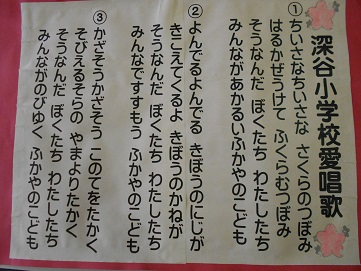 深谷小学校愛唱歌
①ちいさなちいさな さくらのつぼみ
はるかぜうけて ふくらむつぼみ
そうなんだ ぼくたち わたしたち
みんながあかるいふかやのこども
②よんでるよんでる きぼうのにじが
きこえてくるよ きぼうのかねが
そうなんだ ぼくたち わたしたち
みんなですすもう ふかやのこども
③かざそうかざそう このてをたかく
そびえるそらの やまよりたかく
そうなんだ ぼくたち わたしたち
みんながのびゆく ふかやのこども